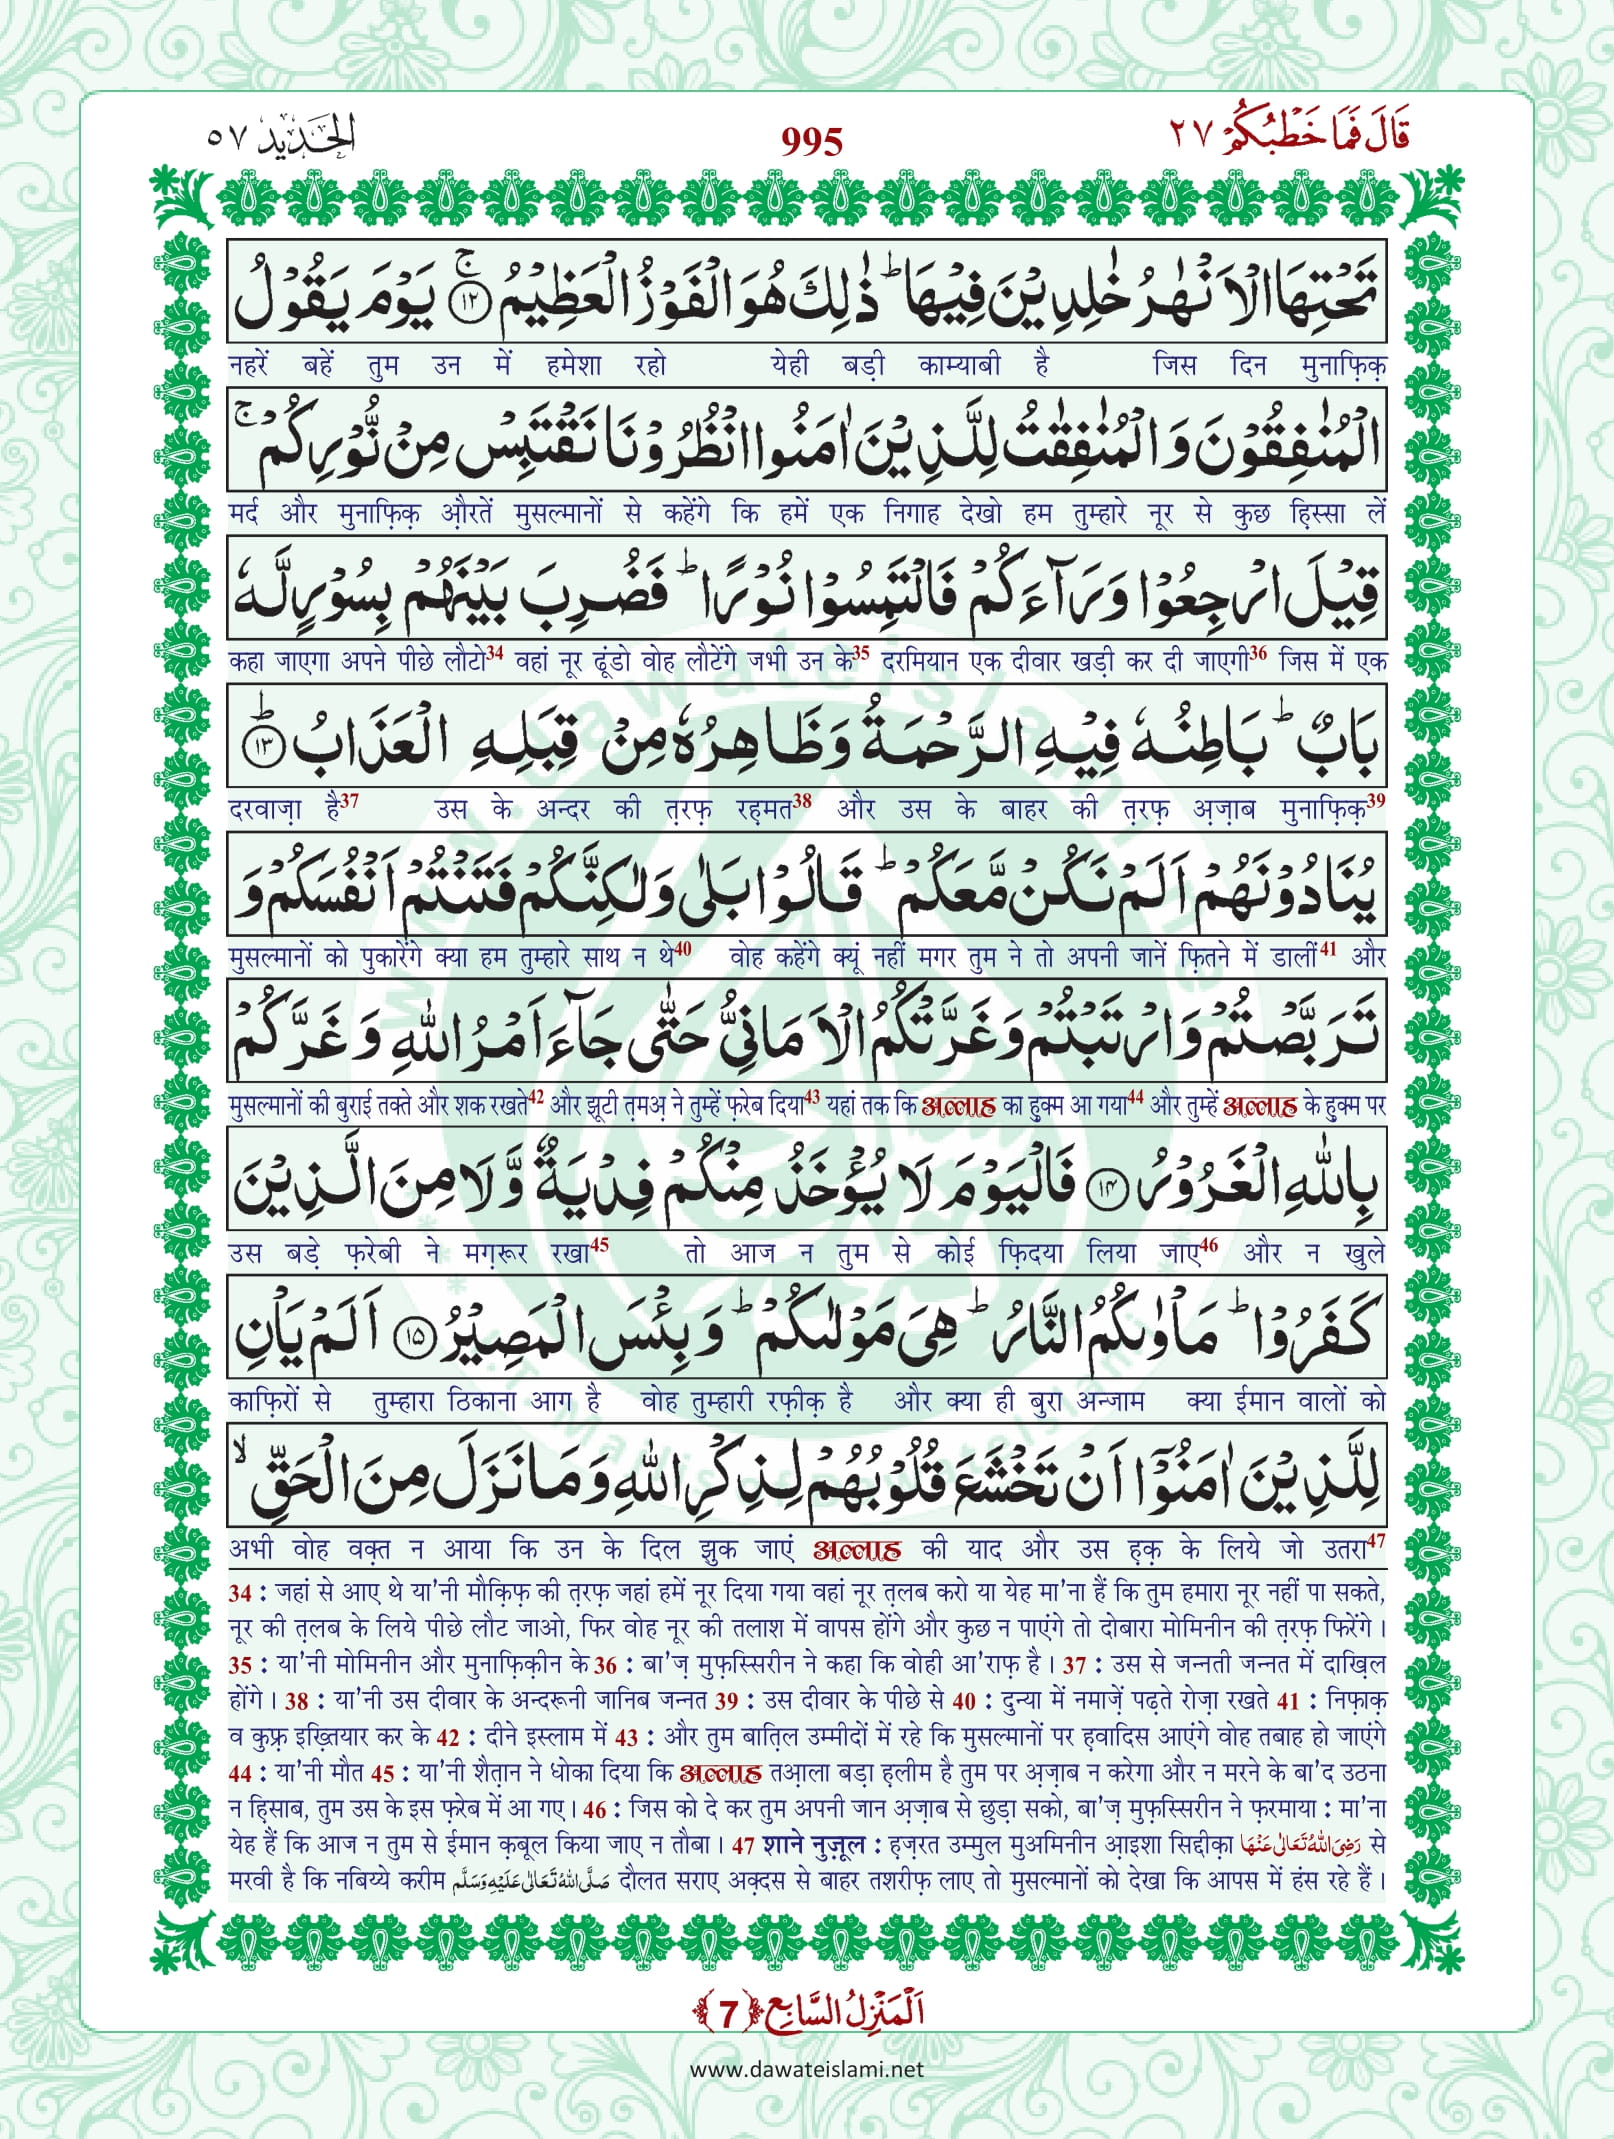 قَالَ فَمَا خَطْبُكُمْ ٢٧
995
الحَدِيد ٥٧
تَحْتِهَا الْاَنْهٰرُ خٰلِدِيْنَ فِيْهَا ؕ ذٰلِكَ هُوَ الْفَوْزُ الْعَظِيْمُ ۚ﴿۱۲﴾ يَوْمَ يَقُوْلُ
नहरें बहें तुम उन में हमेशा रहो येही बड़ी काम्याबी है जिस दिन मुनाफ़िक़
الْمُنٰفِقُوْنَ وَ الْمُنٰفِقٰتُ لِلَّذِيْنَ اٰمَنُوا انْظُرُوْنَا نَقْتَبِسْ مِنْ نُّوْرِكُمْ ۚ
मर्द और मुनाफ़िक़ औ़रतें मुसल्मानों से कहेंगे कि हमें एक निगाह देखो हम तुम्हारे नूर से कुछ हि़स्सा लें
قِيْلَ ارْجِعُوْا وَرَآءَكُمْ فَالْتَمِسُوْا نُوْرًا ؕ فَضُرِبَ بَيْنَهُمْ بِسُوْرٍ لَّهٗ
कहा जाएगा अपने पीछे लौटो34 वहां नूर ढूंडो वोह लौटेंगे जभी उन के35 दरमियान एक दीवार खड़ी कर दी जाएगी36 जिस में एक
بَابٌ ؕ بَاطِنُهٗ فِيْهِ الرَّحْمَةُ وَ ظَاهِرُهٗ مِنْ قِبَلِهِ الْعَذَابُ ؕ﴿۱۳﴾
दरवाज़ा है37 उस के अन्दर की त़रफ़ रह़मत38 और उस के बाहर की त़रफ़ अ़ज़ाब मुनाफ़िक़39
يُنَادُوْنَهُمْ اَلَمْ نَكُنْ مَّعَكُمْ ؕ قَالُوْا بَلٰى وَلٰكِنَّكُمْ فَتَنْتُمْ اَنْفُسَكُمْ وَ
मुसल्मानों को पुकारेंगे क्या हम तुम्हारे साथ न थे40 वोह कहेंगे क्यूं नहीं मगर तुम ने तो अपनी जानें फ़ितने में डालीं41 और
تَرَبَّصْتُمْ وَ ارْتَبْتُمْ وَ غَرَّتْكُمُ الْاَمَانِيُّ حَتّٰى جَآءَ اَمْرُ اللّٰهِ وَ غَرَّكُمْ
मुसल्मानों की बुराई तक्ते और शक रखते42 और झूटी त़मअ़ ने तुम्हें फ़रेब दिया43 यहां तक कि अल्लाह का हु़क्म आ गया44 और तुम्हें अल्लाह के हु़क्म पर
بِاللّٰهِ الْغَرُوْرُ ﴿۱۴﴾ فَالْيَوْمَ لَا يُؤْخَذُ مِنْكُمْ فِدْيَةٌ وَّ لَا مِنَ الَّذِيْنَ
उस बड़े फ़रेबी ने मग़रूर रखा45 तो आज न तुम से कोई फ़िदया लिया जाए46 और न खुले
كَفَرُوْا ؕ مَاْوٰىكُمُ النَّارُ ؕ هِيَ مَوْلٰىكُمْ ؕ وَ بِئْسَ الْمَصِيْرُ ﴿۱۵﴾ اَلَمْ يَاْنِ
काफ़िरों से तुम्हारा ठिकाना आग है वोह तुम्हारी रफ़ीक़ है और क्या ही बुरा अन्जाम क्या ईमान वालों को
لِلَّذِيْنَ اٰمَنُوْۤا اَنْ تَخْشَعَ قُلُوْبُهُمْ لِذِكْرِ اللّٰهِ وَ مَا نَزَلَ مِنَ الْحَقِّ ۙ
अभी वोह वक़्त न आया कि उन के दिल झुक जाएं अल्लाह की याद और उस ह़क़ के लिये जो उतरा47
34 : जहां से आए थे या'नी मौक़िफ़ की त़रफ़ जहां हमें नूर दिया गया वहां नूर त़लब करो या येह मा'ना हैं कि तुम हमारा नूर नहीं पा सकते,
नूर की त़लब के लिये पीछे लौट जाओ, फिर वोह नूर की तलाश में वापस होंगे और कुछ न पाएंगे तो दोबारा मोमिनीन की त़रफ़ फिरेंगे ।
35 : या'नी मोमिनीन और मुनाफ़िक़ीन के 36 : बा'ज़ मुफ़स्सिरीन ने कहा कि वोही आ'राफ़ है । 37 : उस से जन्नती जन्नत में दाख़िल
होंगे । 38 : या'नी उस दीवार के अन्दरूनी जानिब जन्नत 39 : उस दीवार के पीछे से 40 : दुन्या में नमाज़ें पढ़ते रोज़ा रखते 41 : निफ़ाक़
व कुफ़्र इख़्तियार कर के 42 : दीने इस्लाम में 43 : और तुम बात़िल उम्मीदों में रहे कि मुसल्मानों पर ह़वादिस आएंगे वोह तबाह हो जाएंगे
44 : या'नी मौत 45 : या'नी शैत़ान ने धोका दिया कि अल्लाह तआ़ला बड़ा ह़लीम है तुम पर अ़ज़ाब न करेगा और न मरने के बा'द उठना
न हि़साब, तुम उस के इस फ़रेब में आ गए । 46 : जिस को दे कर तुम अपनी जान अ़ज़ाब से छुड़ा सको, बा'ज़ मुफ़स्सिरीन ने फ़रमाया : मा'ना
येह हैं कि आज न तुम से ईमान क़बूल किया जाए न तौबा । 47 शाने नुज़ूल : ह़ज़रत उम्मुल मुअमिनीन आ़इशा सिद्दीक़ा رَضِیَ اللّٰهُ تَعَالٰی عَنْهَا से
मरवी है कि नबिय्ये करीम صَلَّی اللّٰهُ تَعَالٰی عَلَیْهِ وَسَلَّم दौलत सराए अक़्दस से बाहर तशरीफ़ लाए तो मुसल्मानों को देखा कि आपस में हंस रहे हैं ।
اَلْمَنْزِلُ السَّابِع ﴿7﴾
www.dawateislami.net